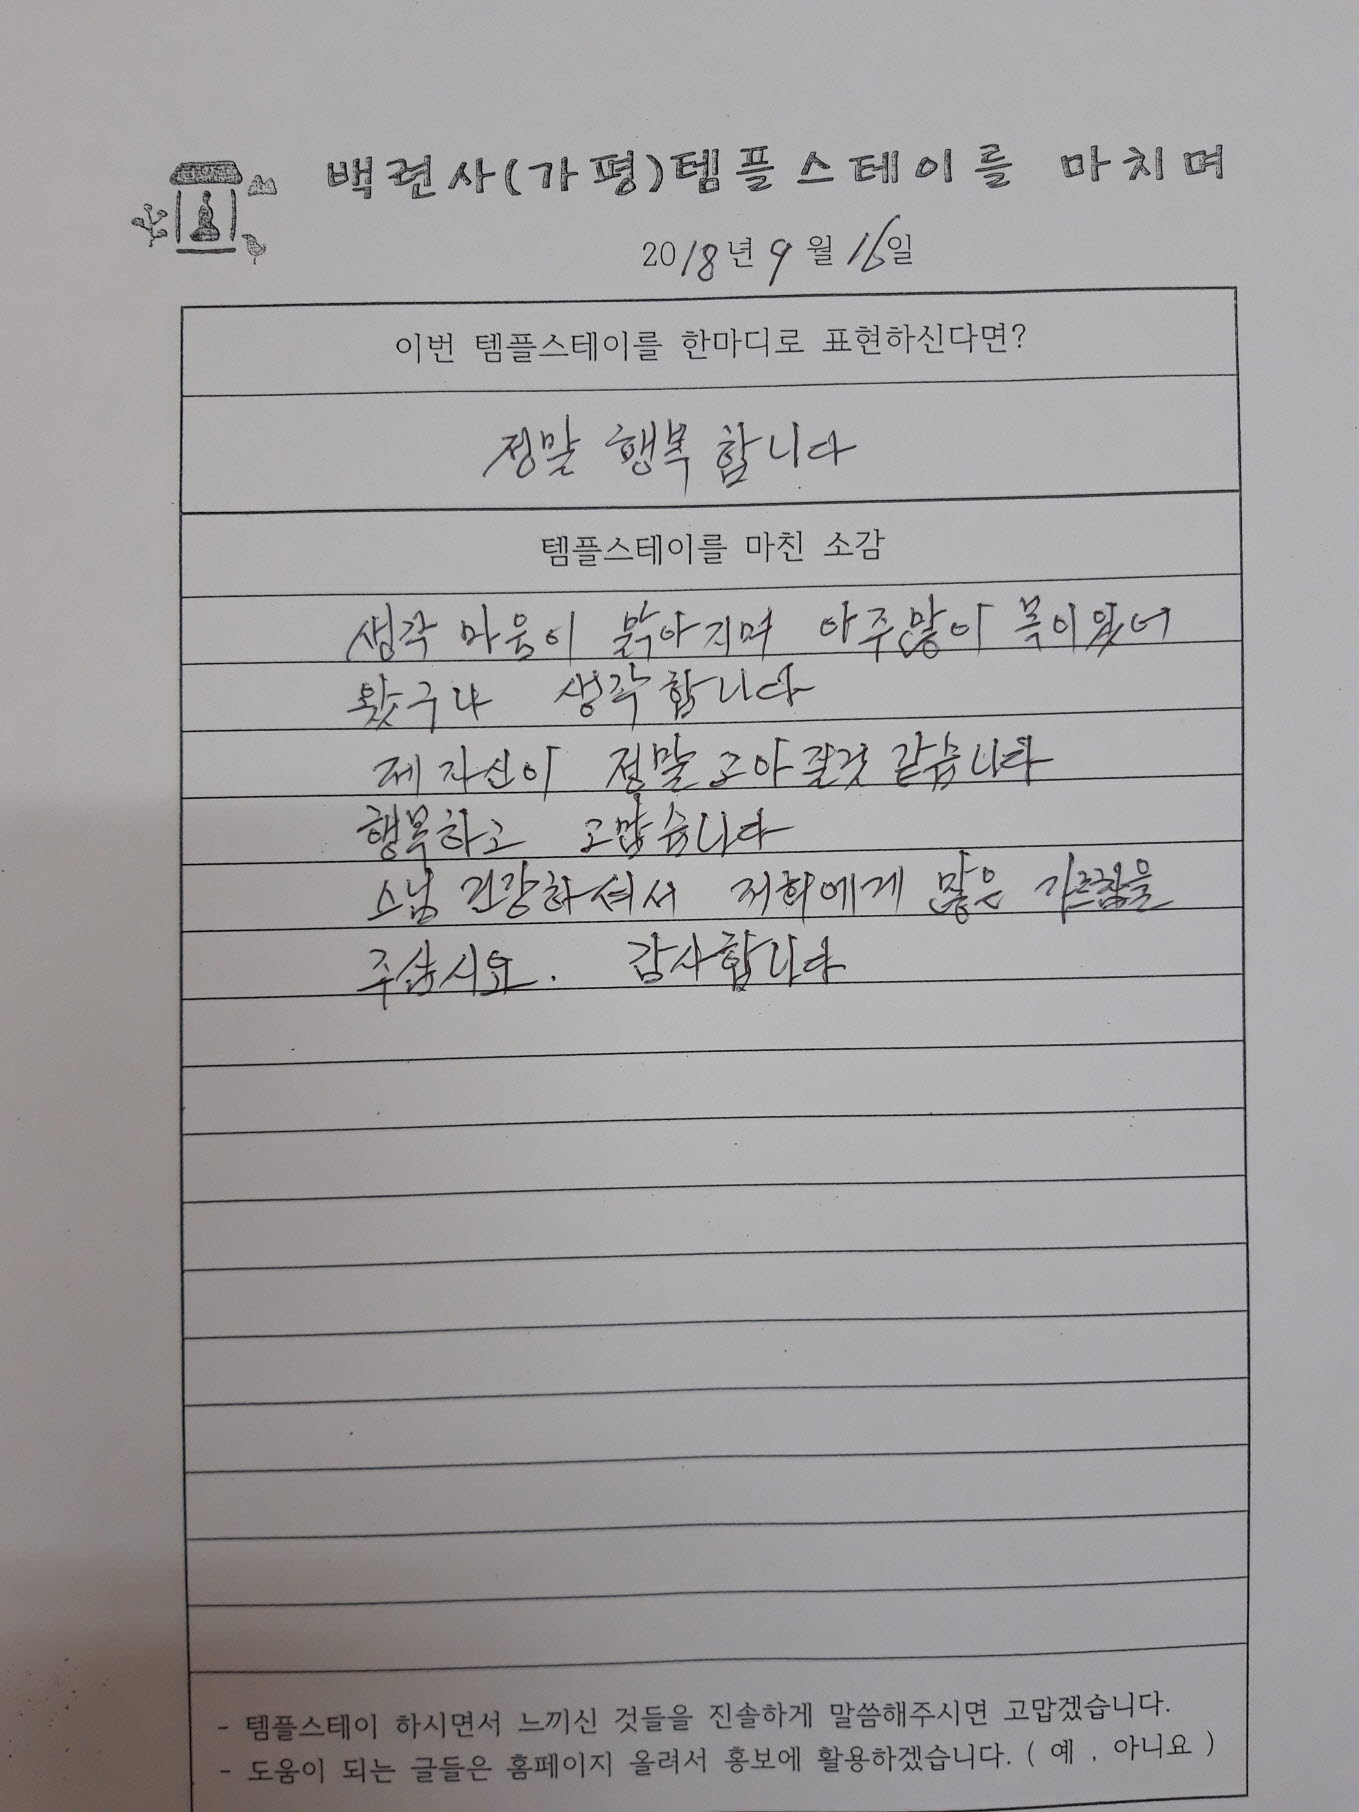 백련사(가평)템플스테이를 마치며
2018년 9월 16일
이번 템플스테이를 한마디로 표현하신다면?
정말 행복합니다
템플스테이를 마친 소감
생각 마음이 맑아지며 아주많이 복이있어
왔구나 생각합니다
제 자신이 정말 고아질것 같습니다
행복하고 고맙습니다
스님 건강하셔서 저희에게 많은 가르침을
주십시요. 감사합니다
- 템플스테이 하시면서 느끼신 것들을 진솔하게 말씀해주시면 고맙겠습니다.
- 도움이 되는 글들은 홈페이지 올려서 홍보에 활용하겠습니다. ( 예 , 아니요 )